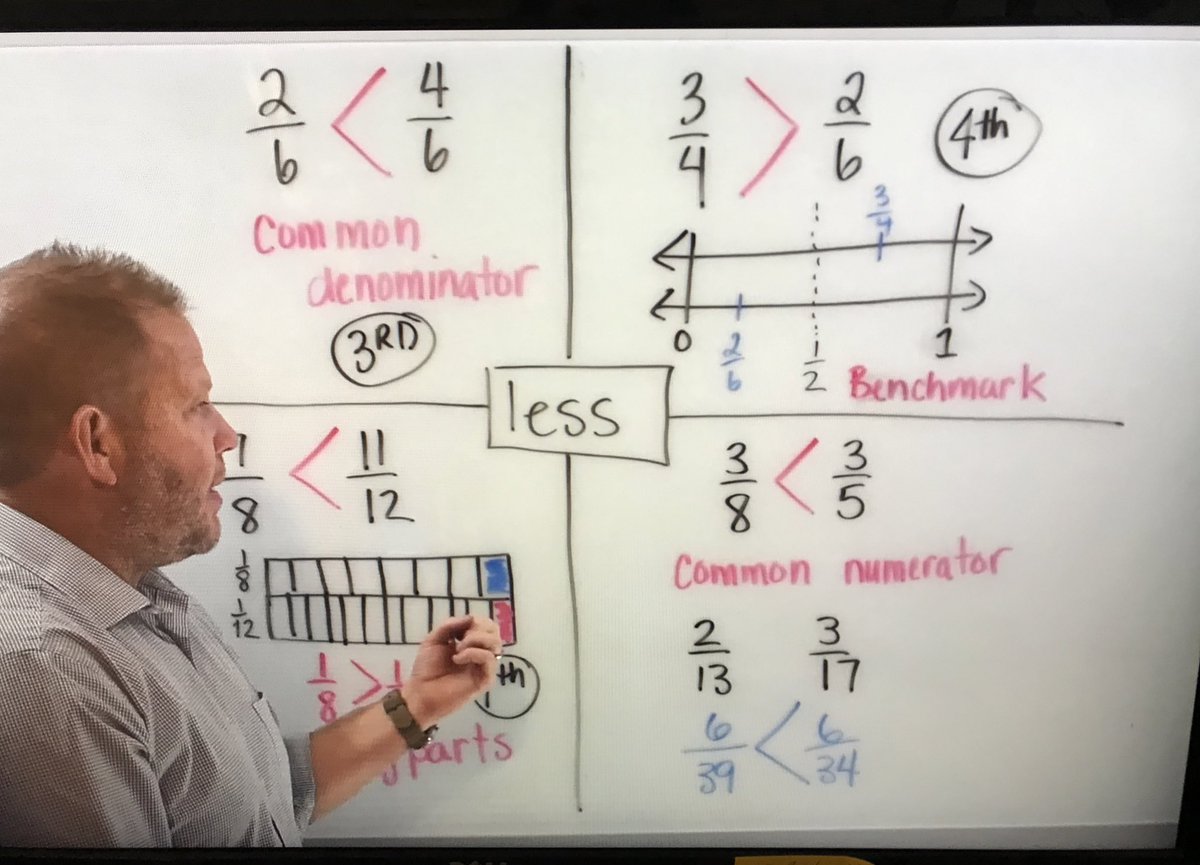 2/6 < 4/6
Common
denominator
3RD
3/4 > 2/6
4th
3/4
0
2/6
1/2
1
Benchmark
less
7/8 < 11/12
1/8
1/12
1/8 >
th
parts
3/8 < 3/5
Common numerator
2/13 3/17
6/39 < 6/34